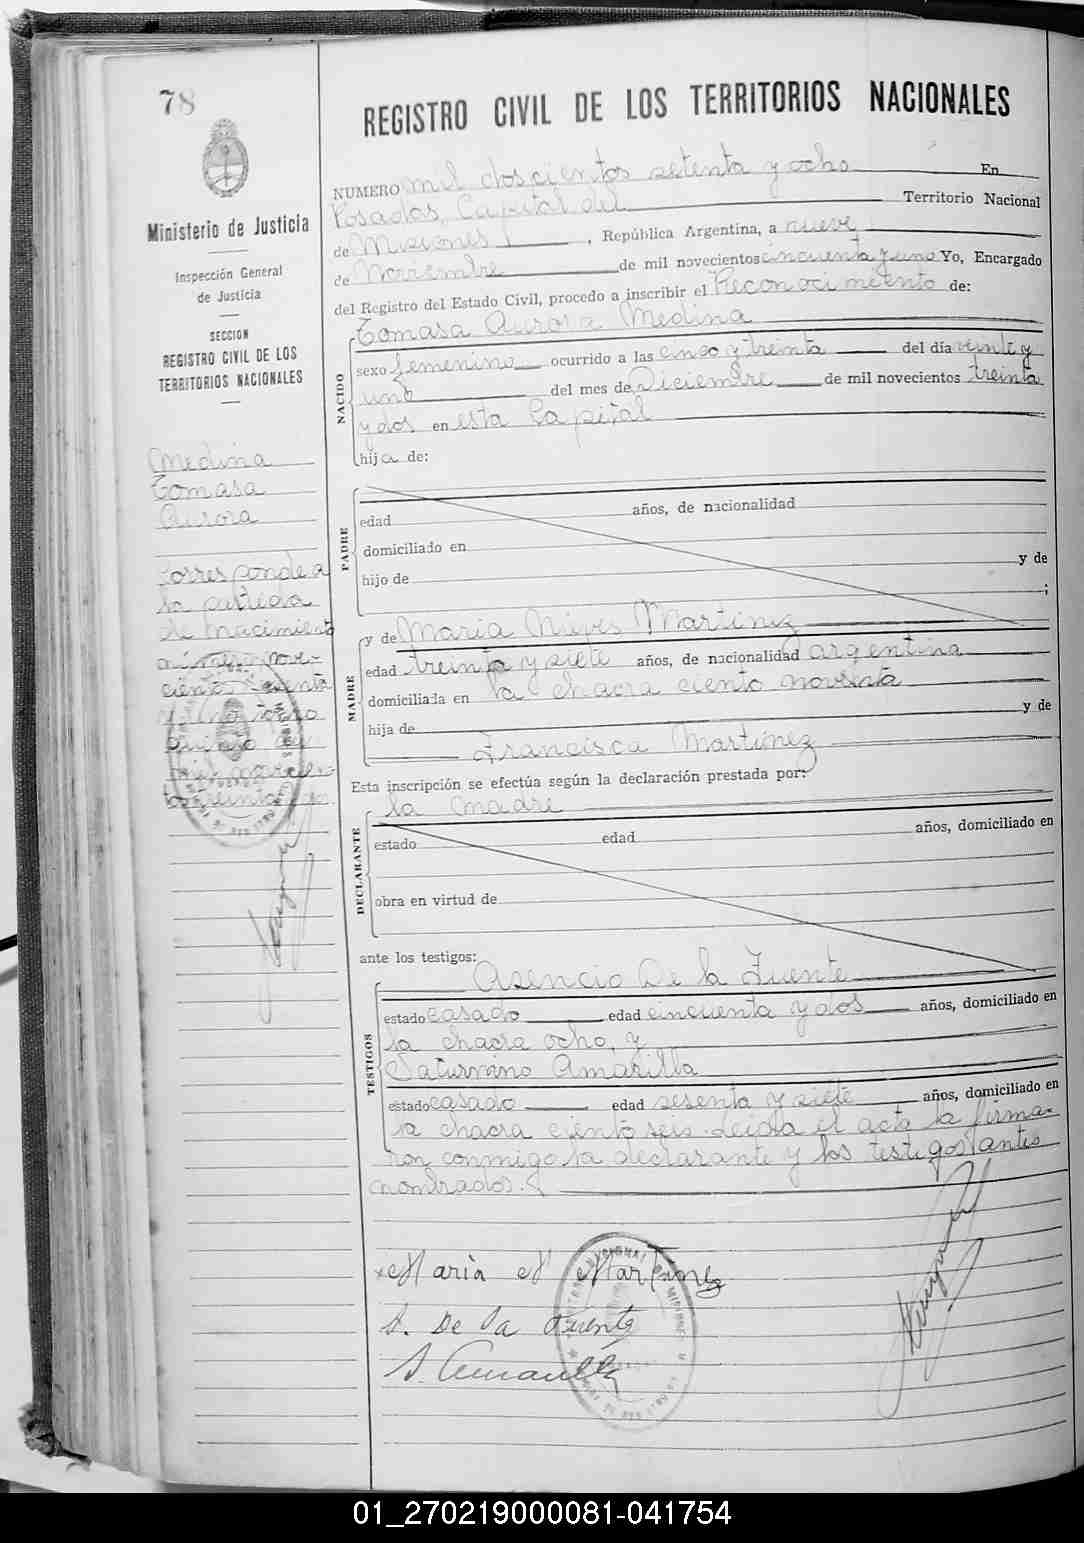 78
REGISTRO CIVIL DE LOS TERRITORIOS NACIONALES
Ministerio de Justicia
Inspección General
de Justicia
SECCION
REGISTRO CIVIL DE LOS
TERRITORIOS NACIONALES
Medina
Tomasa
Aurora
corresponde a
la partida
de nacimiento
NUMERO mil doscientos setenta y ocho En
Posadas, Capital del Territorio Nacional
de Misiones, República Argentina, a nueve
de Noviembre de mil novecientos cincuenta y uno Yo, Encargado
del Registro del Estado Civil, procedo a inscribir el Reconocimiento de:
Tomasa Aurora Medina
NACIDO
sexo femenino ocurrido a las cinco y treinta del día veinte y
uno del mes de Diciembre de mil novecientos treinta
y dos en esta Capital
hija de:
PADRE
edad años, de nacionalidad
domiciliado en
hijo de y de
;
MADRE
y de Maria Nieves Martinez
edad treinta y siete años, de nacionalidad argentina
domiciliada en la chacra ciento noventa
hija de y de
Francisca Martinez
Esta inscripción se efectúa según la declaración prestada por:
la madre
DECLARANTE
estado edad años, domiciliado en
obra en virtud de
ante los testigos:
Asencio De la Fuente
TESTIGOS
estado casado edad cincuenta y dos años, domiciliado en
la chacra ocho, y
Saturnino Amarilla
estado casado edad sesenta y siete años, domiciliado en
la chacra ciento seis. Leida el acta la firma-
ron conmigo la declarante y los testigos antes
nombrados.
Maria N Martinez
A. De la Fuente
S. Amarilla
01_270219000081-041754